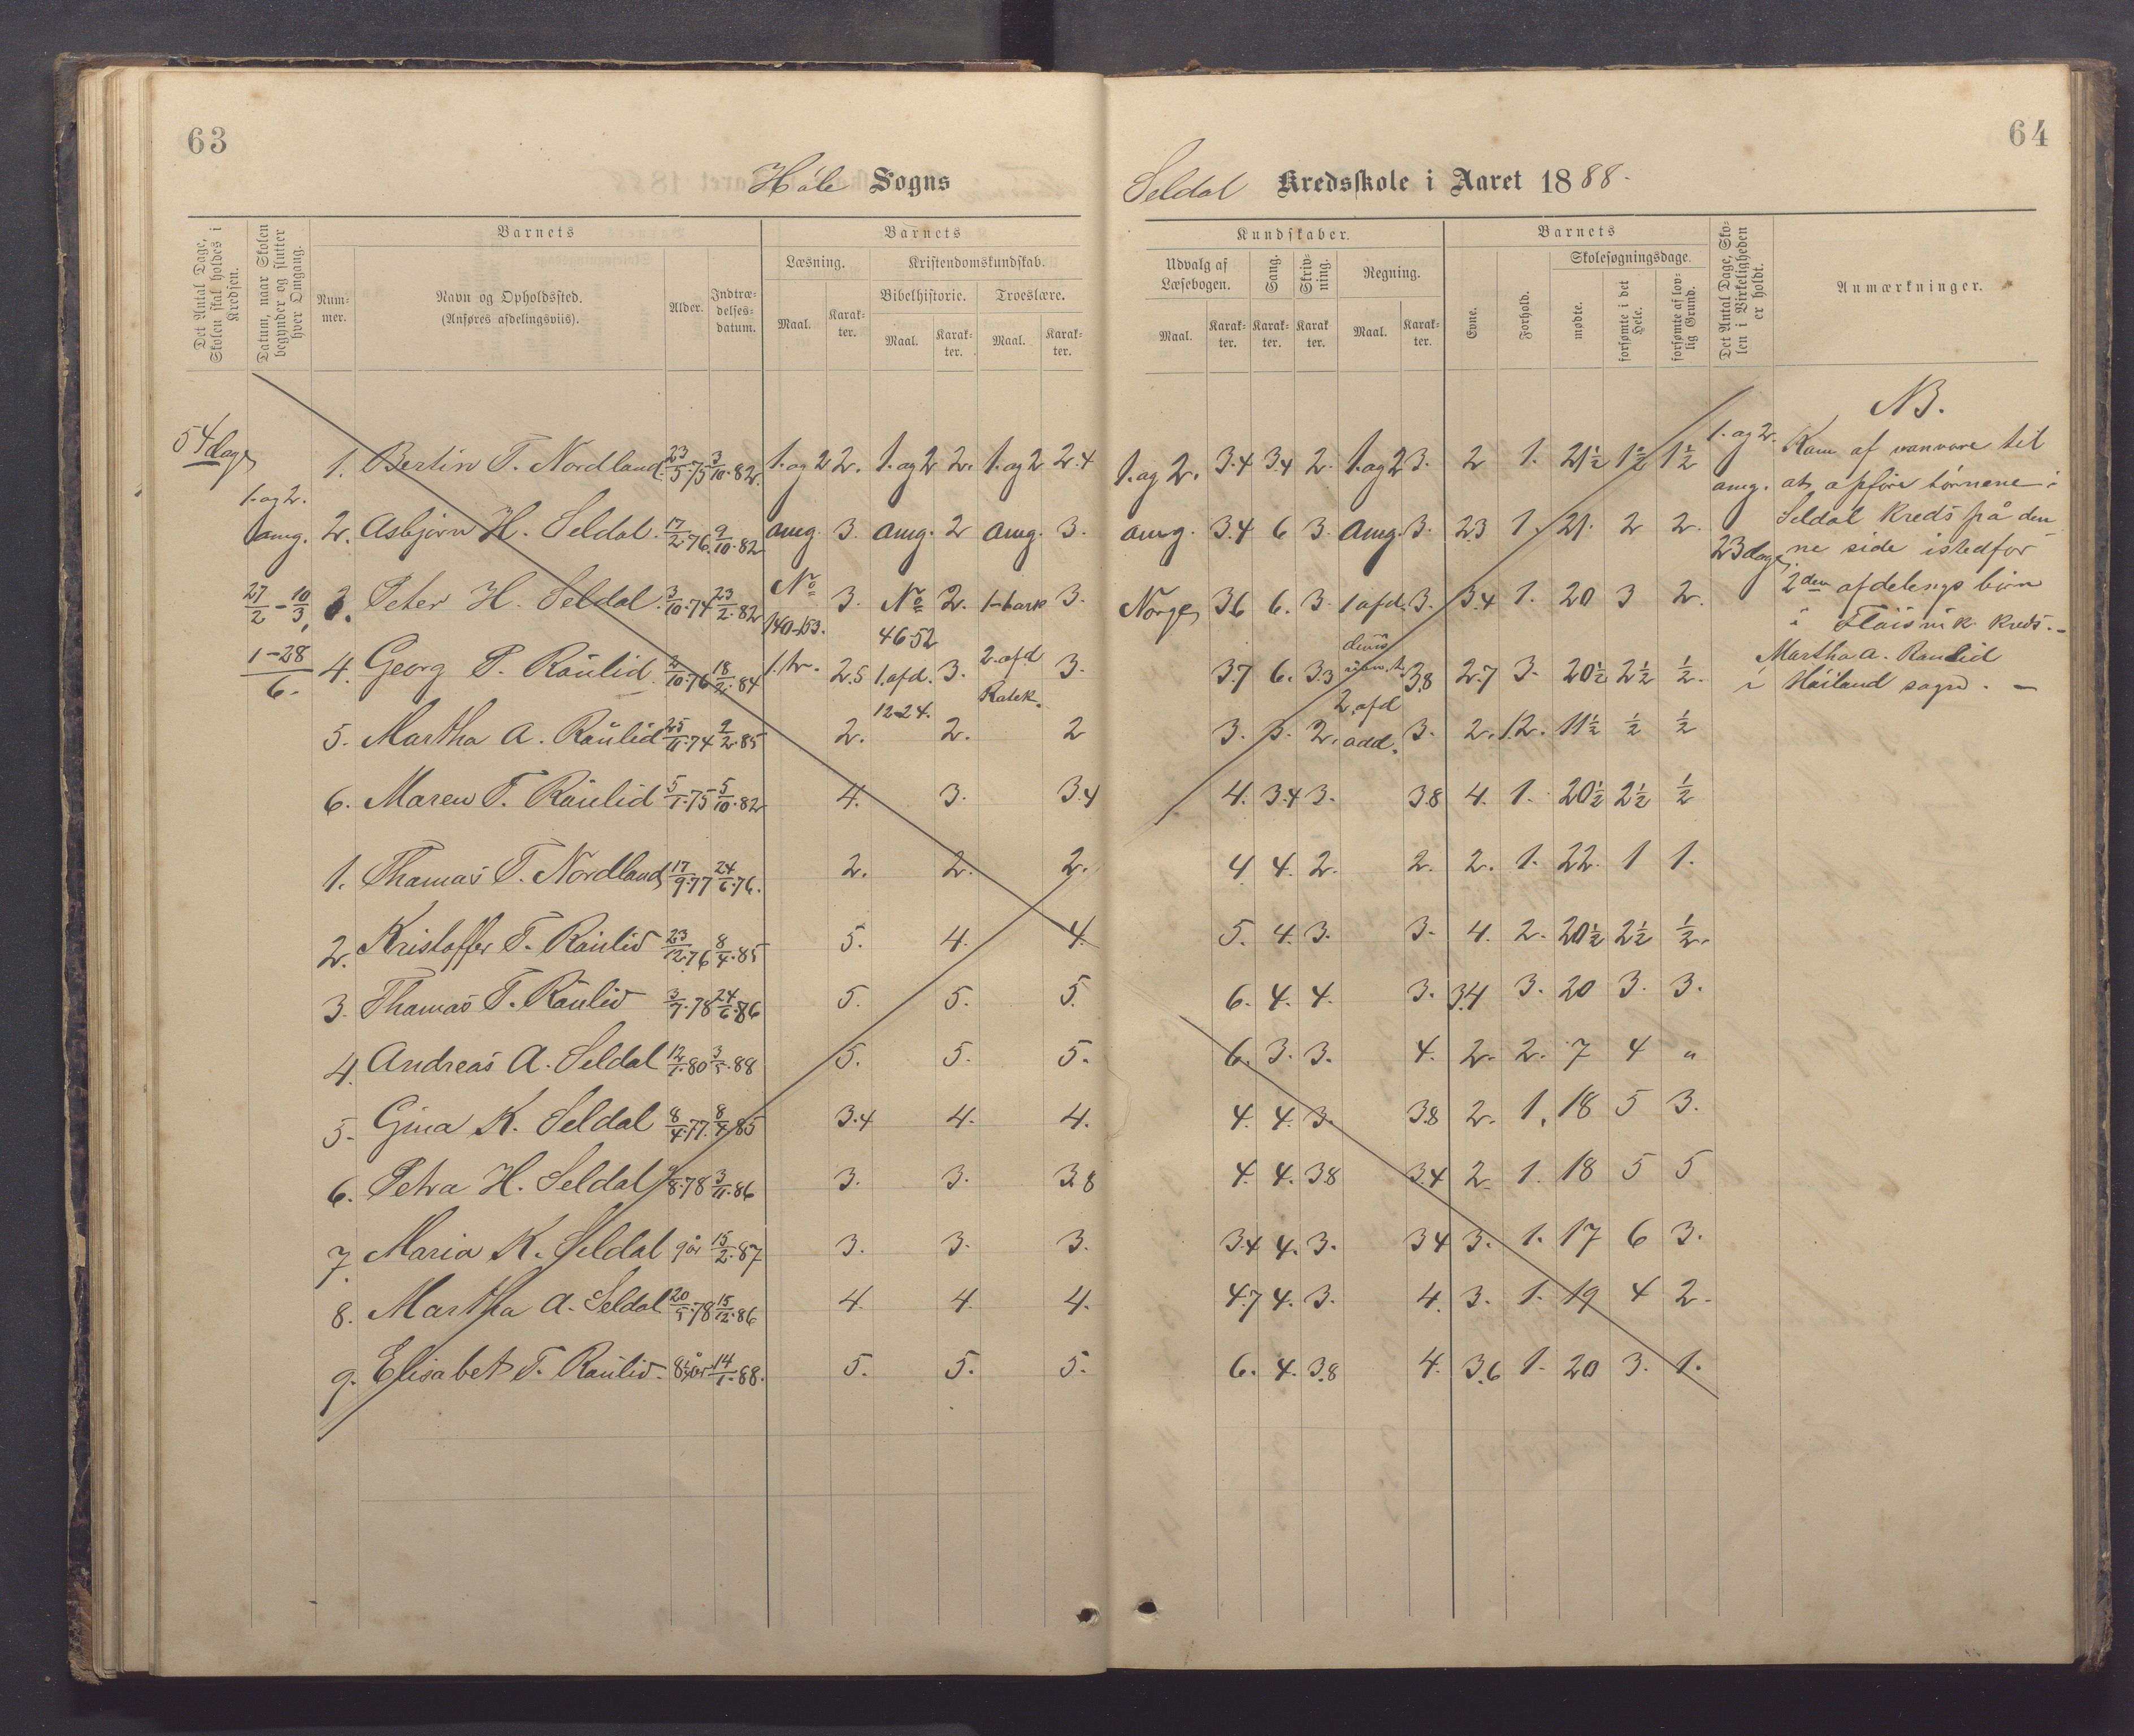 63
64
Høle Sogns
Seldal Kredsskole i Aaret 1888.
Det Antal Dage, Skolen skal holdes i Kredsen.
Datum, naar Skolen begynder og slutter hver Omgang.
Barnets
Num-
mer.
Navn og Opholdssted.
(Anføres afdelingsviis).
Alder.
Indtræ-
delses-
datum.
Barnets
Læsning.
Maal.
Karak-
ter.
Kristendomskundskab.
Bibelhistorie.
Maal.
Karak-
ter.
Troeslære.
Maal.
Karak-
ter.
Kundskaber.
Udvalg af
Læsebogen.
Maal.
Karak-
ter.
Sang.
Karak-
ter.
Skriv-
ning.
Karak
ter.
Regning.
Maal.
Karak-
ter.
Barnets
Evne.
Forhold.
Skolesøgningsdage.
mødte.
forsømte i det Hele.
forsømte af lov-
lig Grund.
Det Antal Dage, Sko-
len i Virkeligheden
er holdt.
Anmærkninger.
54 dage
1. Bertin T. Nordland 23/5.75 3/10.82. 1. og 2 2. 1. og 2 2. 1. og 2 2.4 1. og 2. 3.4 3.4 2. 1. og 2 3. 2 1. 21½ 1½ 1½ 1. og 2.
1. og 2.
omg. 2. Asbjørn H. Seldal. 17/2.76. 9/10.82 omg. 3. omg. 2 omg. 3. omg. 3.4 6 3. omg. 3. 23 1. 21. 2 2. omg.
23 dage
27/2 - 10/3, 3. Peter H. Seldal. 3/10.74 23/2.82 No 140-153. 3. No 46-52 2. 3. Norge 36 6. 3. 1 afd. 3. 3.4 1. 20 3 2.
1-28/6. 4. Georg T. Raulid. 2/10.76 18/2.84 2.5 1. afd. 12-24. 3. 2. afd Katek. 3. 3.7 6. 3.3 2. afd add. 3.8 2.7 3. 20½ 2½ ½.
5. Martha A. Raulid 25/11.74 2/2.85 2. 2. 2 3. 3. 2. 3. 2. 1.2. 11½ ½ ½
6. Maren T. Raulid 5/1.75 5/10.82 4. 3. 3.4 4. 3.4 3. 3.8 4. 1. 20½ 2½ ½
1. Thomas T. Nordland 17/9.77 24/6.76. 2. 2. 2. 4 4. 2. 2. 2. 1. 22. 1 1.
2. Kristoffer T. Raulid 23/12.76 8/4.85 5. 4. 4. 5. 4. 3. 3. 4. 2. 20½ 2½ ½.
3. Thomas T. Raulid 3/7.78 24/6.86 5. 5. 5. 6. 4. 4. 3. 3.4 3. 20 3. 3.
4. Andreas A. Seldal 12/1.80 3/5.88 5. 5. 5. 6. 3. 3. 4. 2. 2. 7 4 "
5. Gina K. Seldal 8/4.77. 8/4 85 3.4 4. 4. 4. 4. 3. 3.8 2. 1. 18 5 3.
6. Petra H. Seldal 8.78 3/11.86 3. 3. 3.8 4. 4. 3.8 3.4 2 1. 18 5 5
7. Maria K. Seldal 9 år 15/2.87 3. 3. 3. 3.4 4. 3. 34 3. 1. 17 6 3.
8. Martha A. Seldal 20/5.78 15/12.86 4. 4. 4. 4.7 4. 3. 4. 3. 1. 19 4 2.
9. Elisabet T. Raulid. 8½ år 14/1.88. 5. 5. 5. 6. 4. 3.8 4. 3.6 1. 20 3. 1.
NB.
Kam af vanvare til
at opføre børnene i
Seldal Kreds på den
ne side istedfor
2den afdelings børn
i Fløisvik Kreds.-
Martha A. Raulid
i Høiland sogn. -